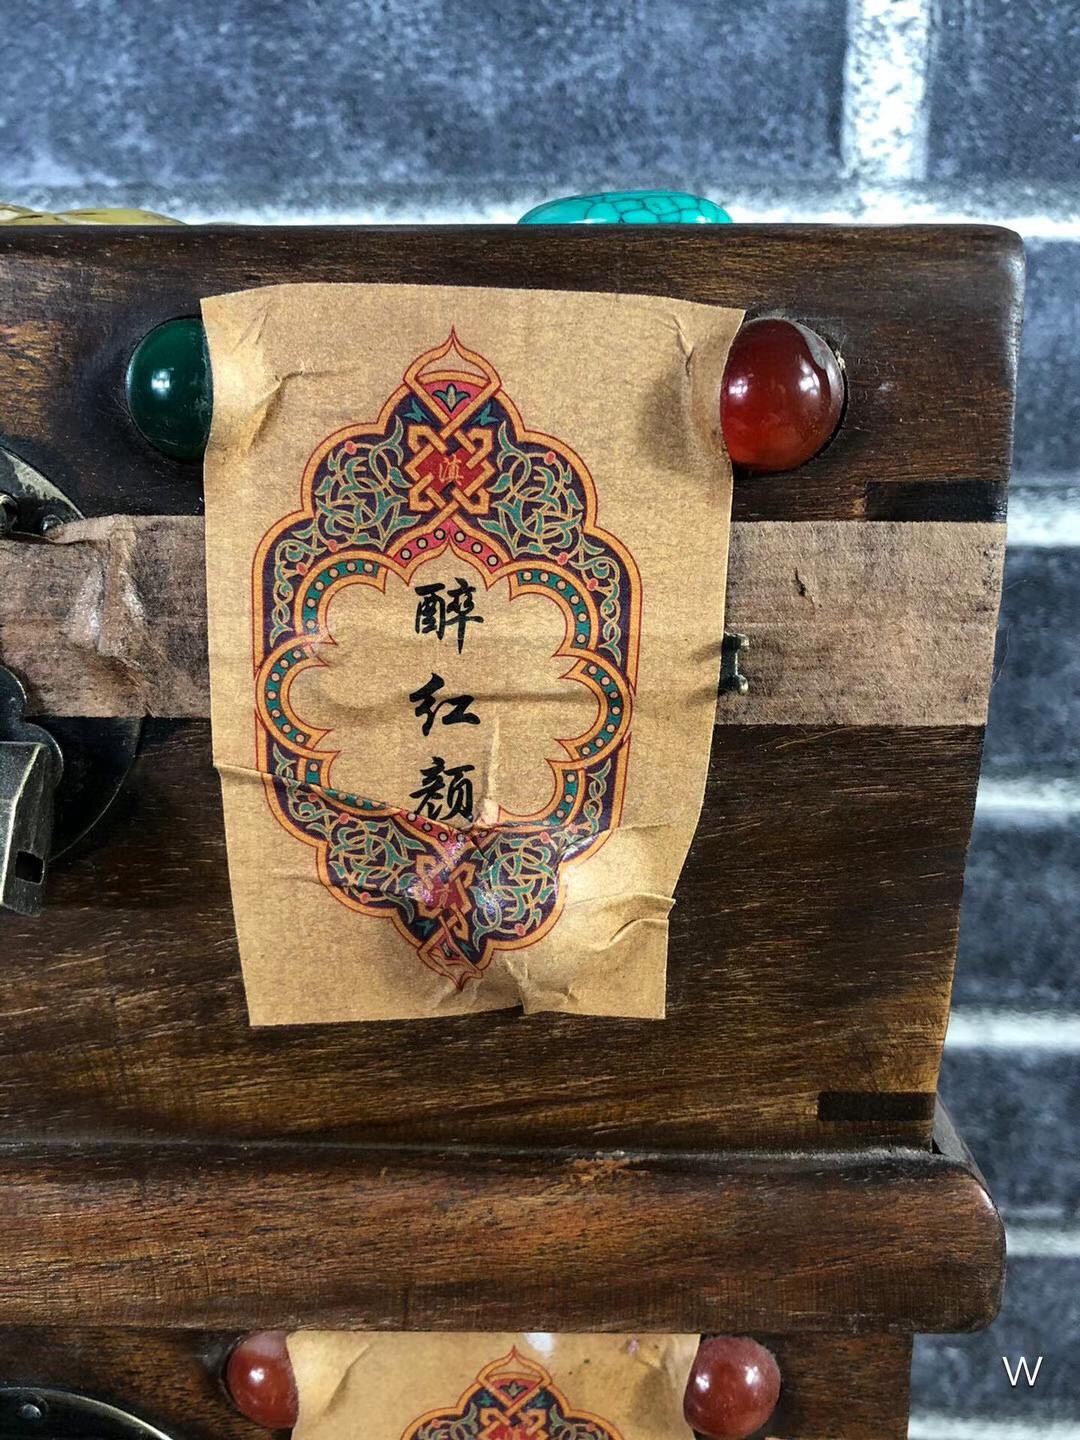 滇
醉
红
颜
W